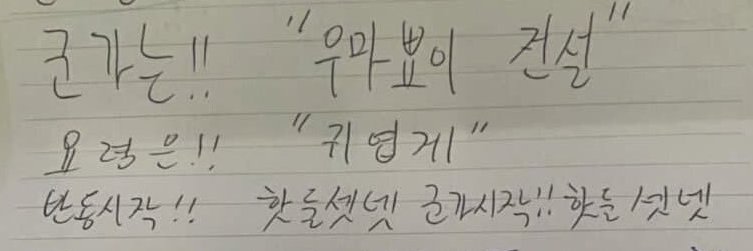 군가는!! "우마뾰이 전설"
요령은!! "귀엽게"
반동시작!! 핫둘셋넷 군가시작!! 핫둘셋넷